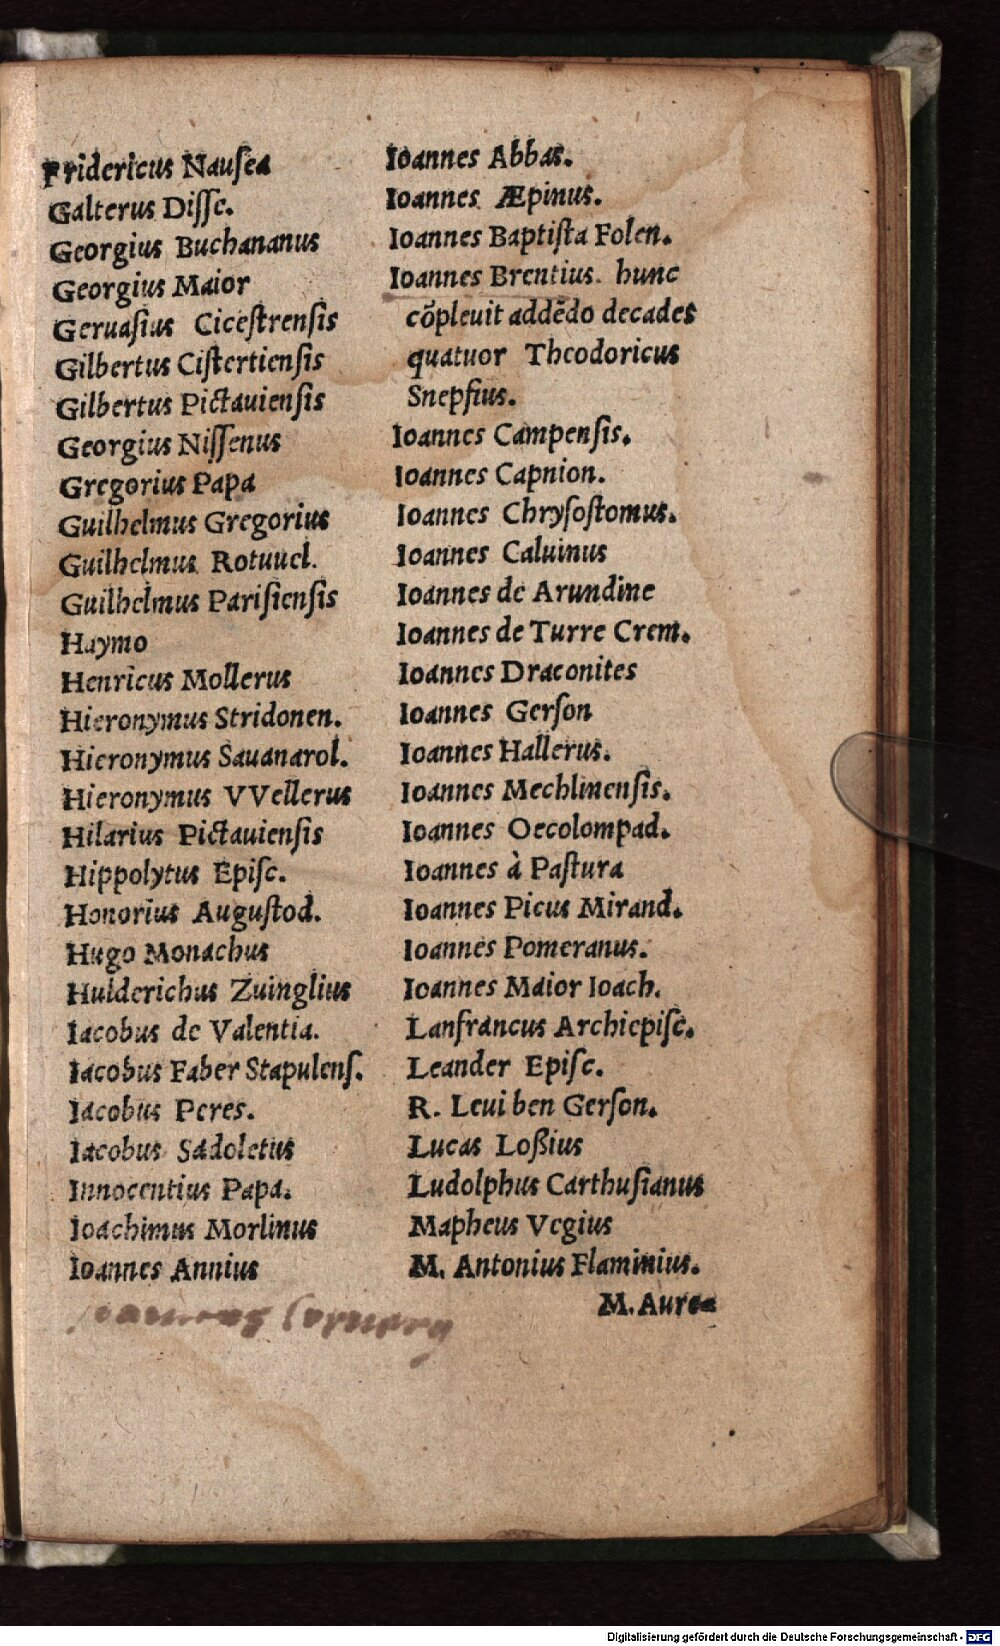 Fridericus Nauſea
Galterus Diſſe.
Georgius Buchananus
Georgius Maior
Geruaſius Ciceſtrenſis
Gilbertus Ciſtertienſis
Gilbertus Pictauienſis
Georgius Niſſenus
Gregorius Papa
Guilhelmus Gregorius
Guilhelmus Rotuuel.
Guilhelmus Pariſienſis
Haymo
Henricus Mollerus
Hieronymus Stridonen.
Hieronymus Sauanarol.
Hieronymus VVellerus
Hilarius Pictauienſis
Hippolytus Epiſc.
Honorius Auguſtod.
Hugo Monachus
Hulderichus Zuinglius
Iacobus de Valentia.
Iacobus Faber Stapulenſ.
Iacobus Peres.
Iacobus Sadoletus
Innocentius Papa.
Ioachimus Morlinus
Ioannes Annius
Ioannes Abbas.
Ioannes Æpinus.
Ioannes Baptiſta Folen.
Ioannes Brentius. hunc
cõpleuit addẽdo decades
quatuor Theodoricus
Snepfius.
Ioannes Campenſis.
Ioannes Capnion.
Ioannes Chryſoſtomus.
Ioannes Caluinus
Ioannes de Arundine
Ioannes de Turre Crem.
Ioannes Draconites
Ioannes Gerſon
Ioannes Hallerus.
Ioannes Mechlinenſis.
Ioannes Oecolompad.
Ioannes à Paſtura
Ioannes Picus Mirand.
Ioannes Pomeranus.
Ioannes Maior Ioach.
Lanfrancus Archiepiſc.
Leander Epiſc.
R. Leui ben Gerſon.
Lucas Loßius
Ludolphus Carthuſianus
Mapheus Vegius
M. Antonius Flaminius.
M. Aurea
Digitalisierung gefördert durch die Deutsche Forschungsgemeinschaft - DFG